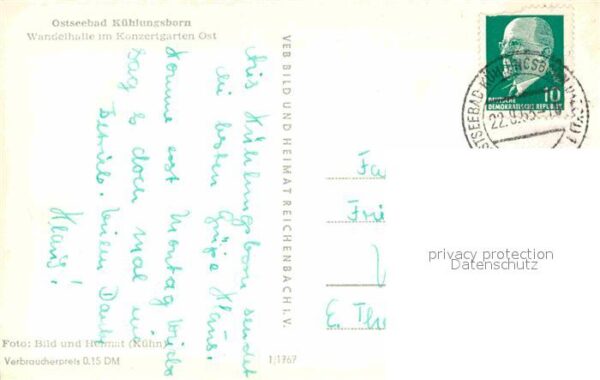 Ostseebad Kühlungsborn
Wandelhalle im Konzertgarten Ost
Aus Kühlungsborn sendet
die besten Grüße Klaus.
Komme erst Montag
sag es doch mal
Vielen Dank
Klaus!
VEB BILD UND HEIMAT REICHENBACH i. V.
DEUTSCHE
DEMOKRATISCHE REPUBLIK
10
OSTSEEBAD KÜHLUNGSBORN
22.9.65
Fa
Frie
E. The
privacy protection
Datenschutz
Foto: Bild und Heimat (Kühn)
Verbraucherpreis 0.15 DM
1/1767